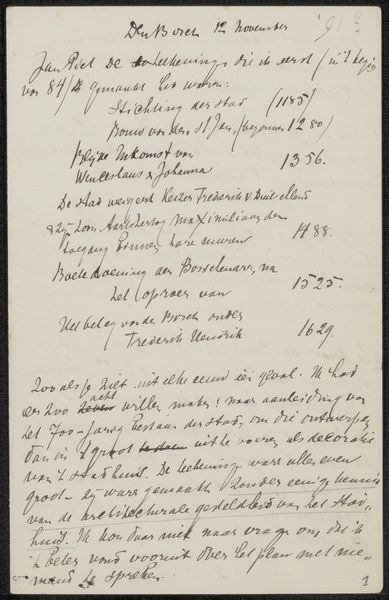 Den Bosch 12 November '91?
Jan Piet De teekeningen die ik eerst (in 't begin
van 84/ gemaakt heb waren:
Stichting der stad (1185)
Bouw van den St Jan, (begonnen 1280)
Blijde Inkomst van
Wenceslaus & Johanna 1356.
De stad weigert Keizer Frederik v Duitschland
& zijn zoon Aartshertog Maximiliaan den
toegang binnen hare muren 1488.
Boetedoening der Bosschenaren, na
het oproer van 1525.
Het beleg van den Bosch onder
Frederik Hendrik 1629.
Zooals je ziet uit elke eeuw één geval. Ik had
er zoo acht willen maken! naar aanleiding van
het 700-jarig bestaan der stad, om die ontwerpen
dan in 't groot uit te voeren als decoratie
van 't stadhuis. De teekeningen waren allen even
groot - zij waren gemaakt zonder eenige kennis
van de architecturale gesteldheid van het Stad-
huis. Ik kon daar niet naar vragen omdat ik
't beter vond vooruit over het plan met nie-
mand te spreken.
1